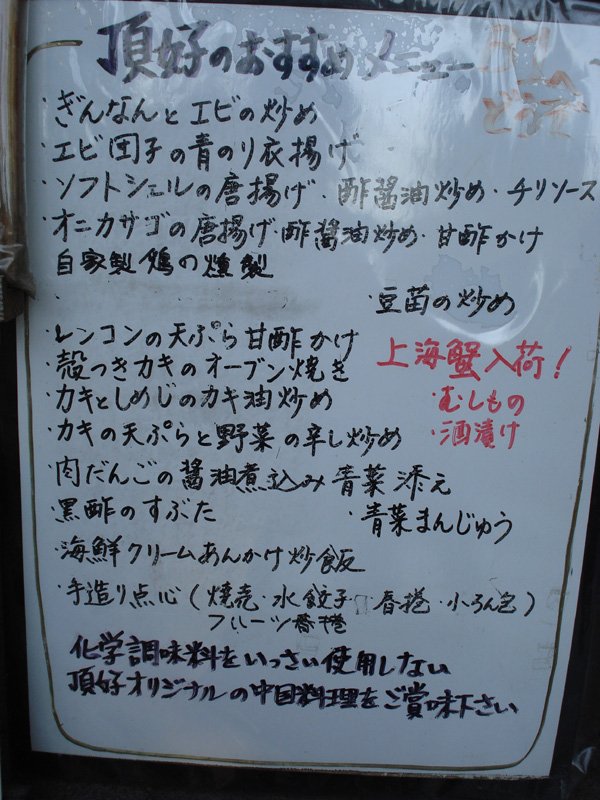 頂好のおすすめメニュー
・ぎんなんとエビの炒め
・エビ団子の青のり衣揚げ
・ソフトシェルの唐揚げ・酢醤油炒め・チリソース
・オニカサゴの唐揚げ・酢醤油炒め・甘酢かけ
自家製鶏の燻製
・豆苗の炒め
・レンコンの天ぷら甘酢かけ
・殻つきカキのオーブン焼き
上海蟹入荷!
・カキとしめじのカキ油炒め
・むしもの
・カキの天ぷらと野菜の辛し炒め
・酒漬け
・肉だんごの醤油煮込み青菜添え
・黒酢のすぶた
・青菜まんじゅう
・海鮮クリームあんかけ炒飯
・手造り点心(焼売・水餃子・春捲・小ろん包)
フルーツ春捲
化学調味料をいっさい使用しない
頂好オリジナルの中国料理をご賞味下さい